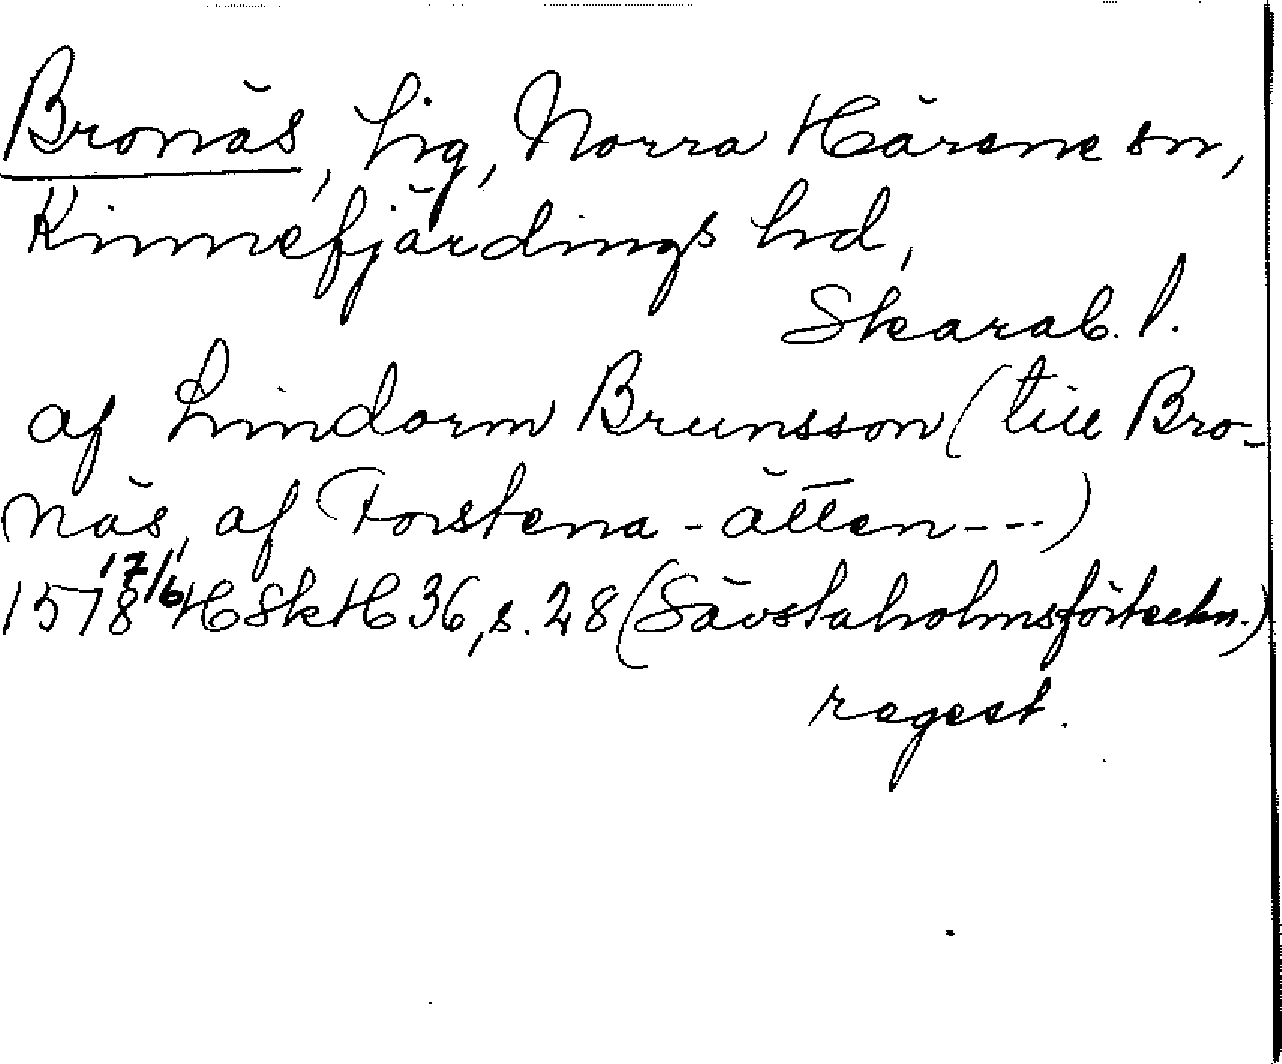 Bronäs, hg, Norra Härene sn,
Kinnefjärdings hd,
Skarab. l.
af Lindorm Brunsson (till Bro-
näs, af Forstena-ätten ---)
1578 17/6 HSkH 36, s. 28 (Sävstaholmsförteckn.)
regest.